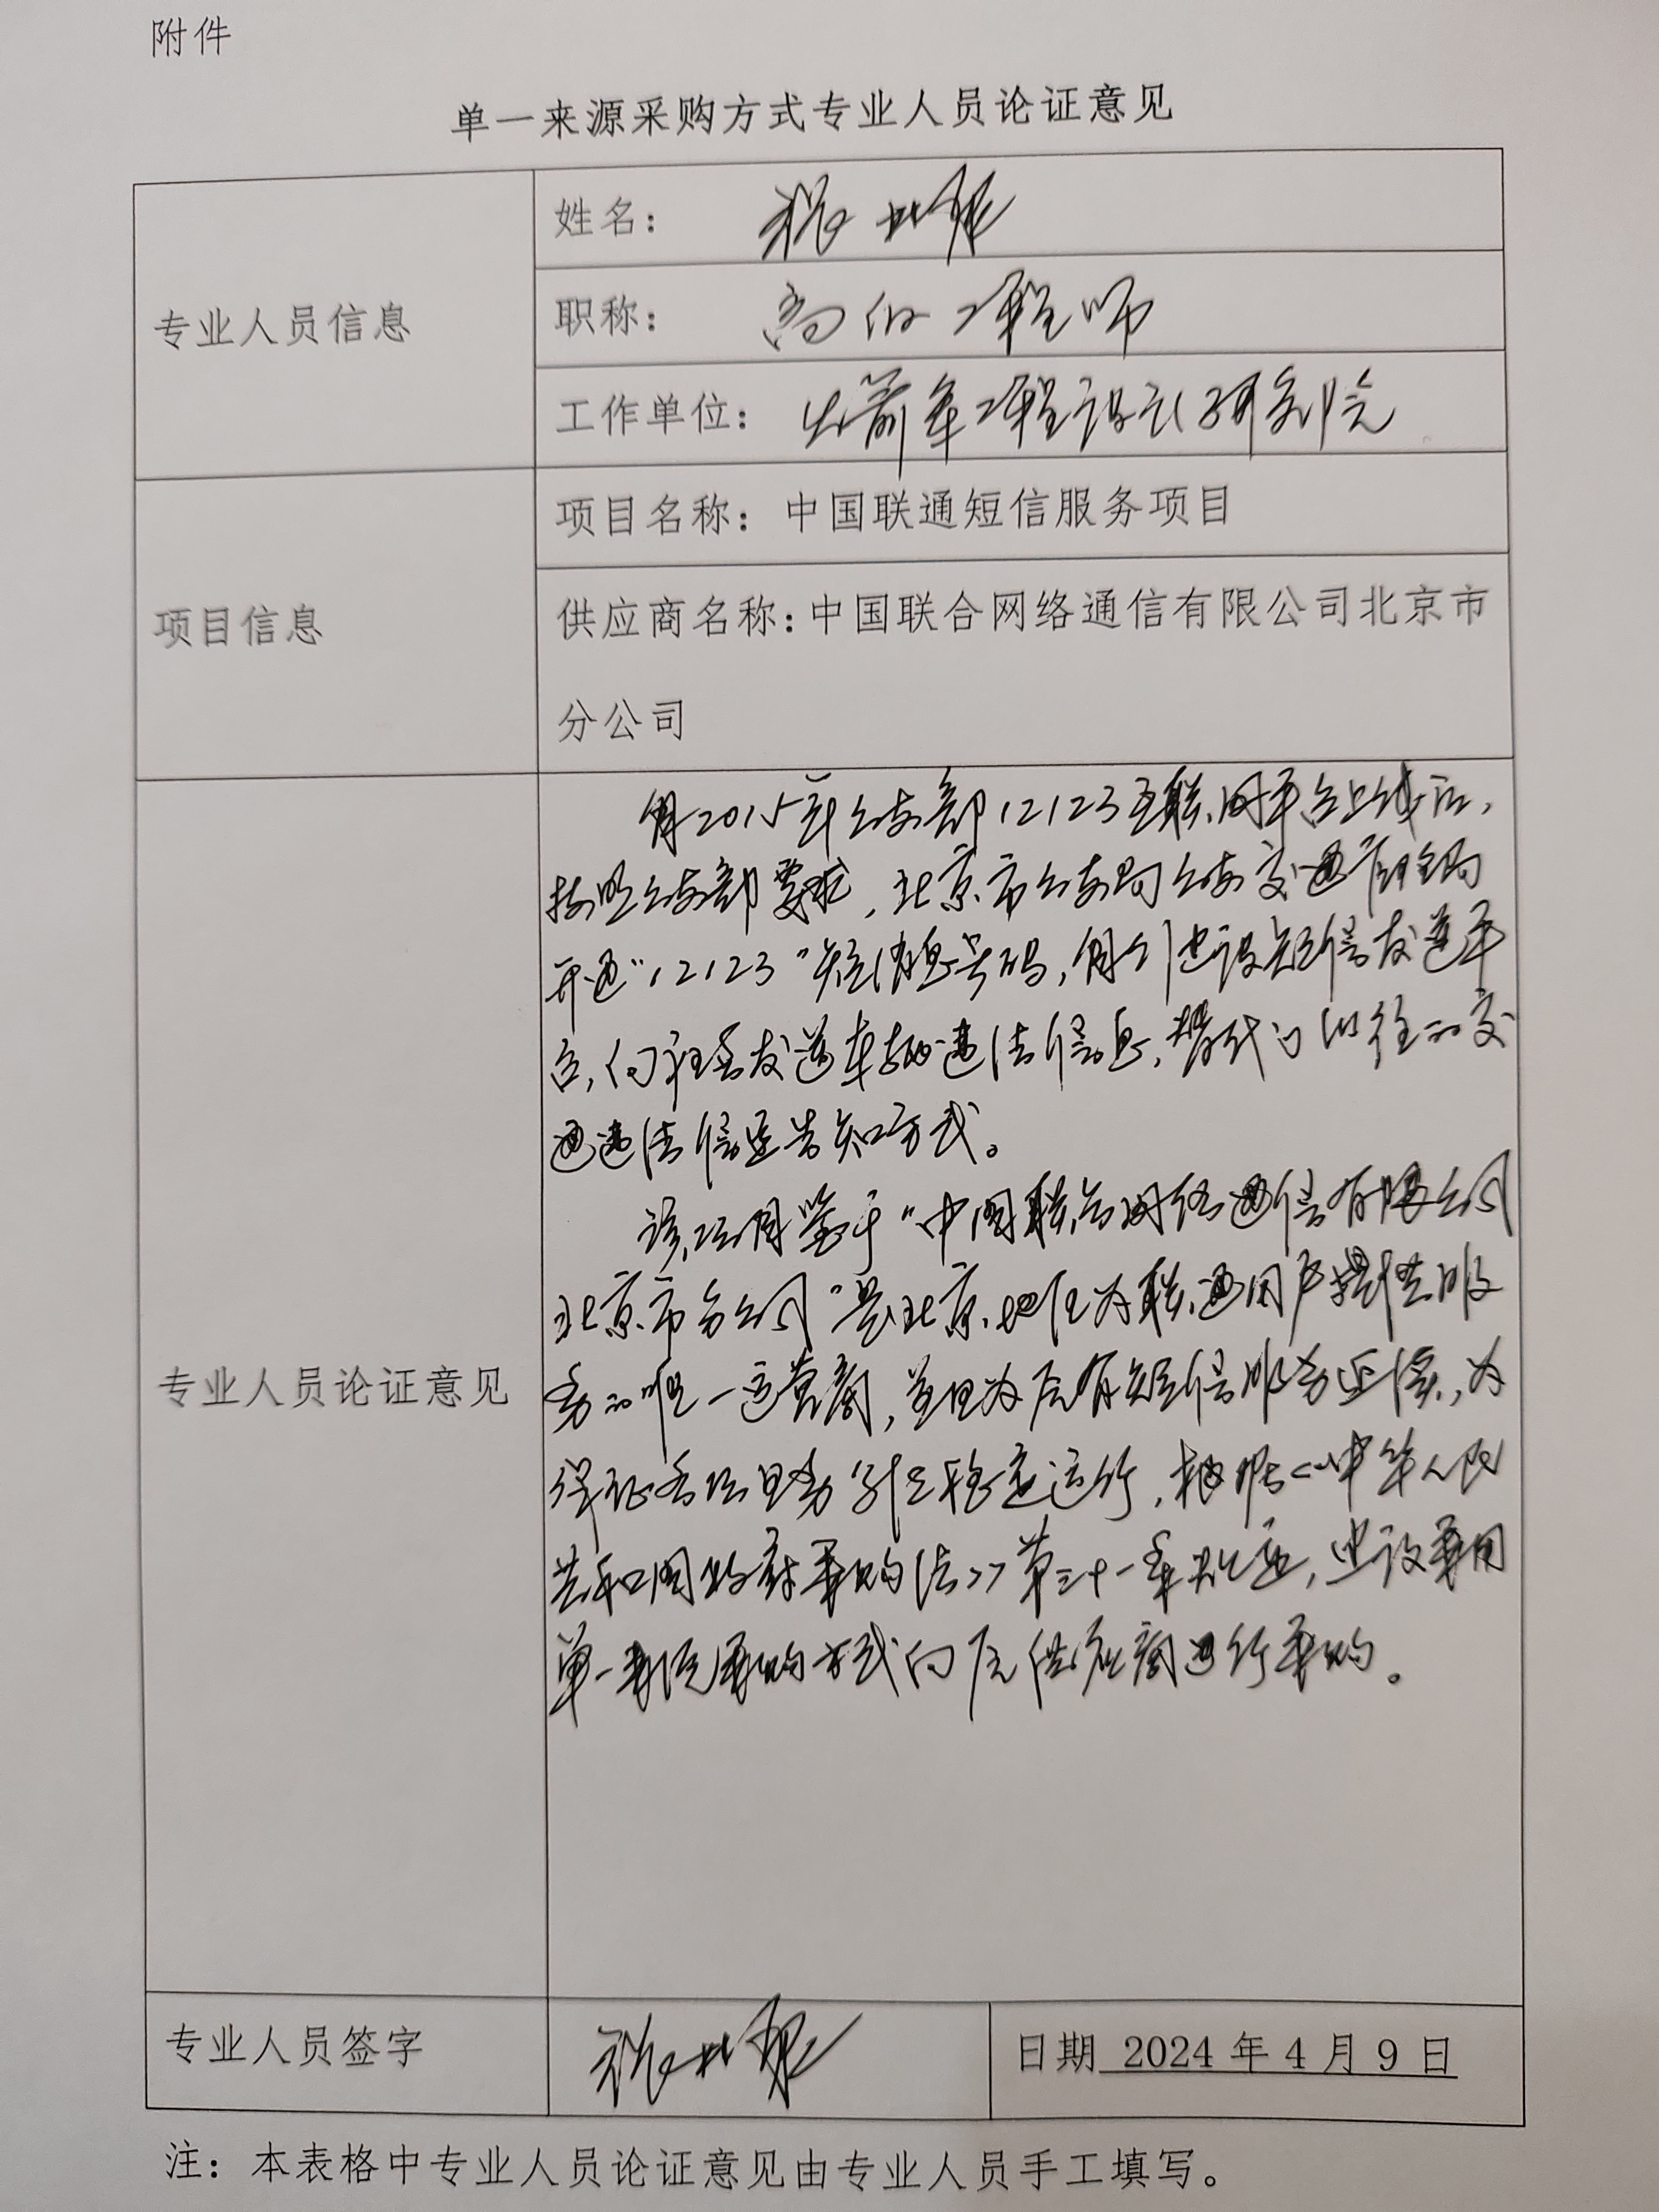 附件
单一来源采购方式专业人员论证意见
专业人员信息
姓名：
职称：高级工程师
工作单位：火箭军工程设计研究院
项目信息
项目名称：中国联通短信服务项目
供应商名称：中国联合网络通信有限公司北京市
分公司
专业人员论证意见
自2015年公安部12123互联网平台上线后，
按照公安部要求，北京市公安局公安交通管理局
开通“12123”短消息号码，自行建设短信发送平
台，向社会发送车辆违法信息，替代了以往的交
通违法信函告知方式。
该项目鉴于“中国联合网络通信有限公司
北京市分公司”是北京地区为联通用户提供服
务的唯一运营商，并且为原有短信服务延续，为
保证各项业务系统稳定运行，根据《中华人民
共和国政府采购法》第三十一条规定，建议采用
单一来源采购方式向原供应商进行采购。
专业人员签字
日期 2024 年 4 月 9 日
注：本表格中专业人员论证意见由专业人员手工填写。